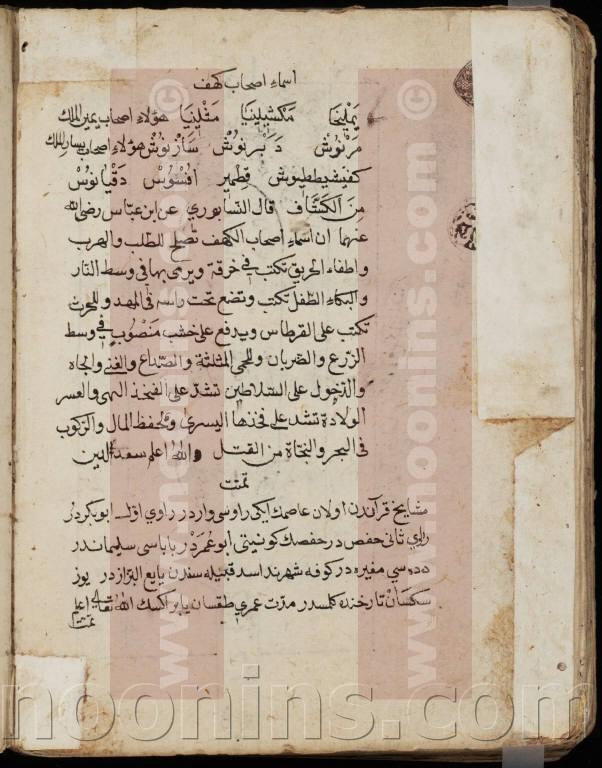 اسماء اصحاب كهف
يَمْلِيخَا مَكْشَلِينِيَا مَثْلِينِيَا هؤلاء اصحاب يمين الملك
مَرْنُوُشْ دَبَرْنُوُشْ سَازَنُوُشْ هؤلاء اصحاب يسار الملك
كفشيططيوش قِطْمِير افسُوُسْ دَقْيَانُوسْ
من الكشّاف قال النسابوري عن ابن عبّاس رضى الله
عنهما ان اسماء اصحاب الكهف تصلح للطلب والهرب
واطفاء الحريق تكتب في خرقة ويرمى بها في وسط النار
والبكاء الطفل تكتب وتضع تحت راسه فى المهد وللحرث
تكتب على القرطاس ويدفع على خشب منصوب في وسط
الزرع والضربان وللحمى المثلثة والصداع والغنى والجاه
والدخول على السلاطين تشد على الفخذ اليمى والعسر
الولادة تشد على فخذها اليسرى ولحفظ المال والركوب
فى البحر والنجاة من القتل والله اعلم سعد الدين
تمت
مشايخ قرآندن اولان عاصمك ايكى راوىسى واردر راوي اول ابوبكردر
راوي ثانى حفص در حفصك كونيتى ابو عمردر باباسى سليماندر
دده سي مغيره در كوفه شهرنده اسد قبيله سندن بايع البزازدر يوز
سكسان تارخنده كلمسدر مدت عمرى طقسان ياشر اكسك الله تعالى اعلم
تمت
www.noonins.com ©
www.noonins.com ©
noonins.com